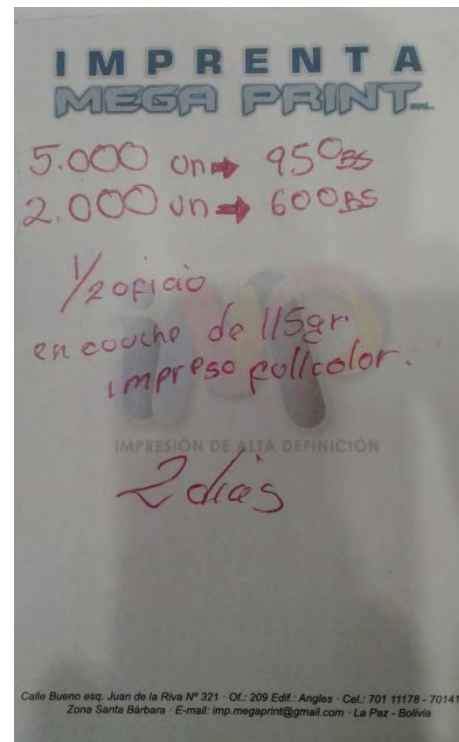 IMPRENTA
MEGA PRINT
5.000 un → 950 BS
2.000 un → 600 BS
1/2 oficio
en couche de 115gr.
impreso fullcolor.
IMPRESIÓN DE ALTA DEFINICIÓN
2 dias
Calle Bueno esq. Juan de la Riva Nº 321 · Of.: 209 Edif.: Angles · Cel.: 701 11178 - 70141
Zona Santa Bárbara · E-mail: imp.megaprint@gmail.com · La Paz - Bolivia